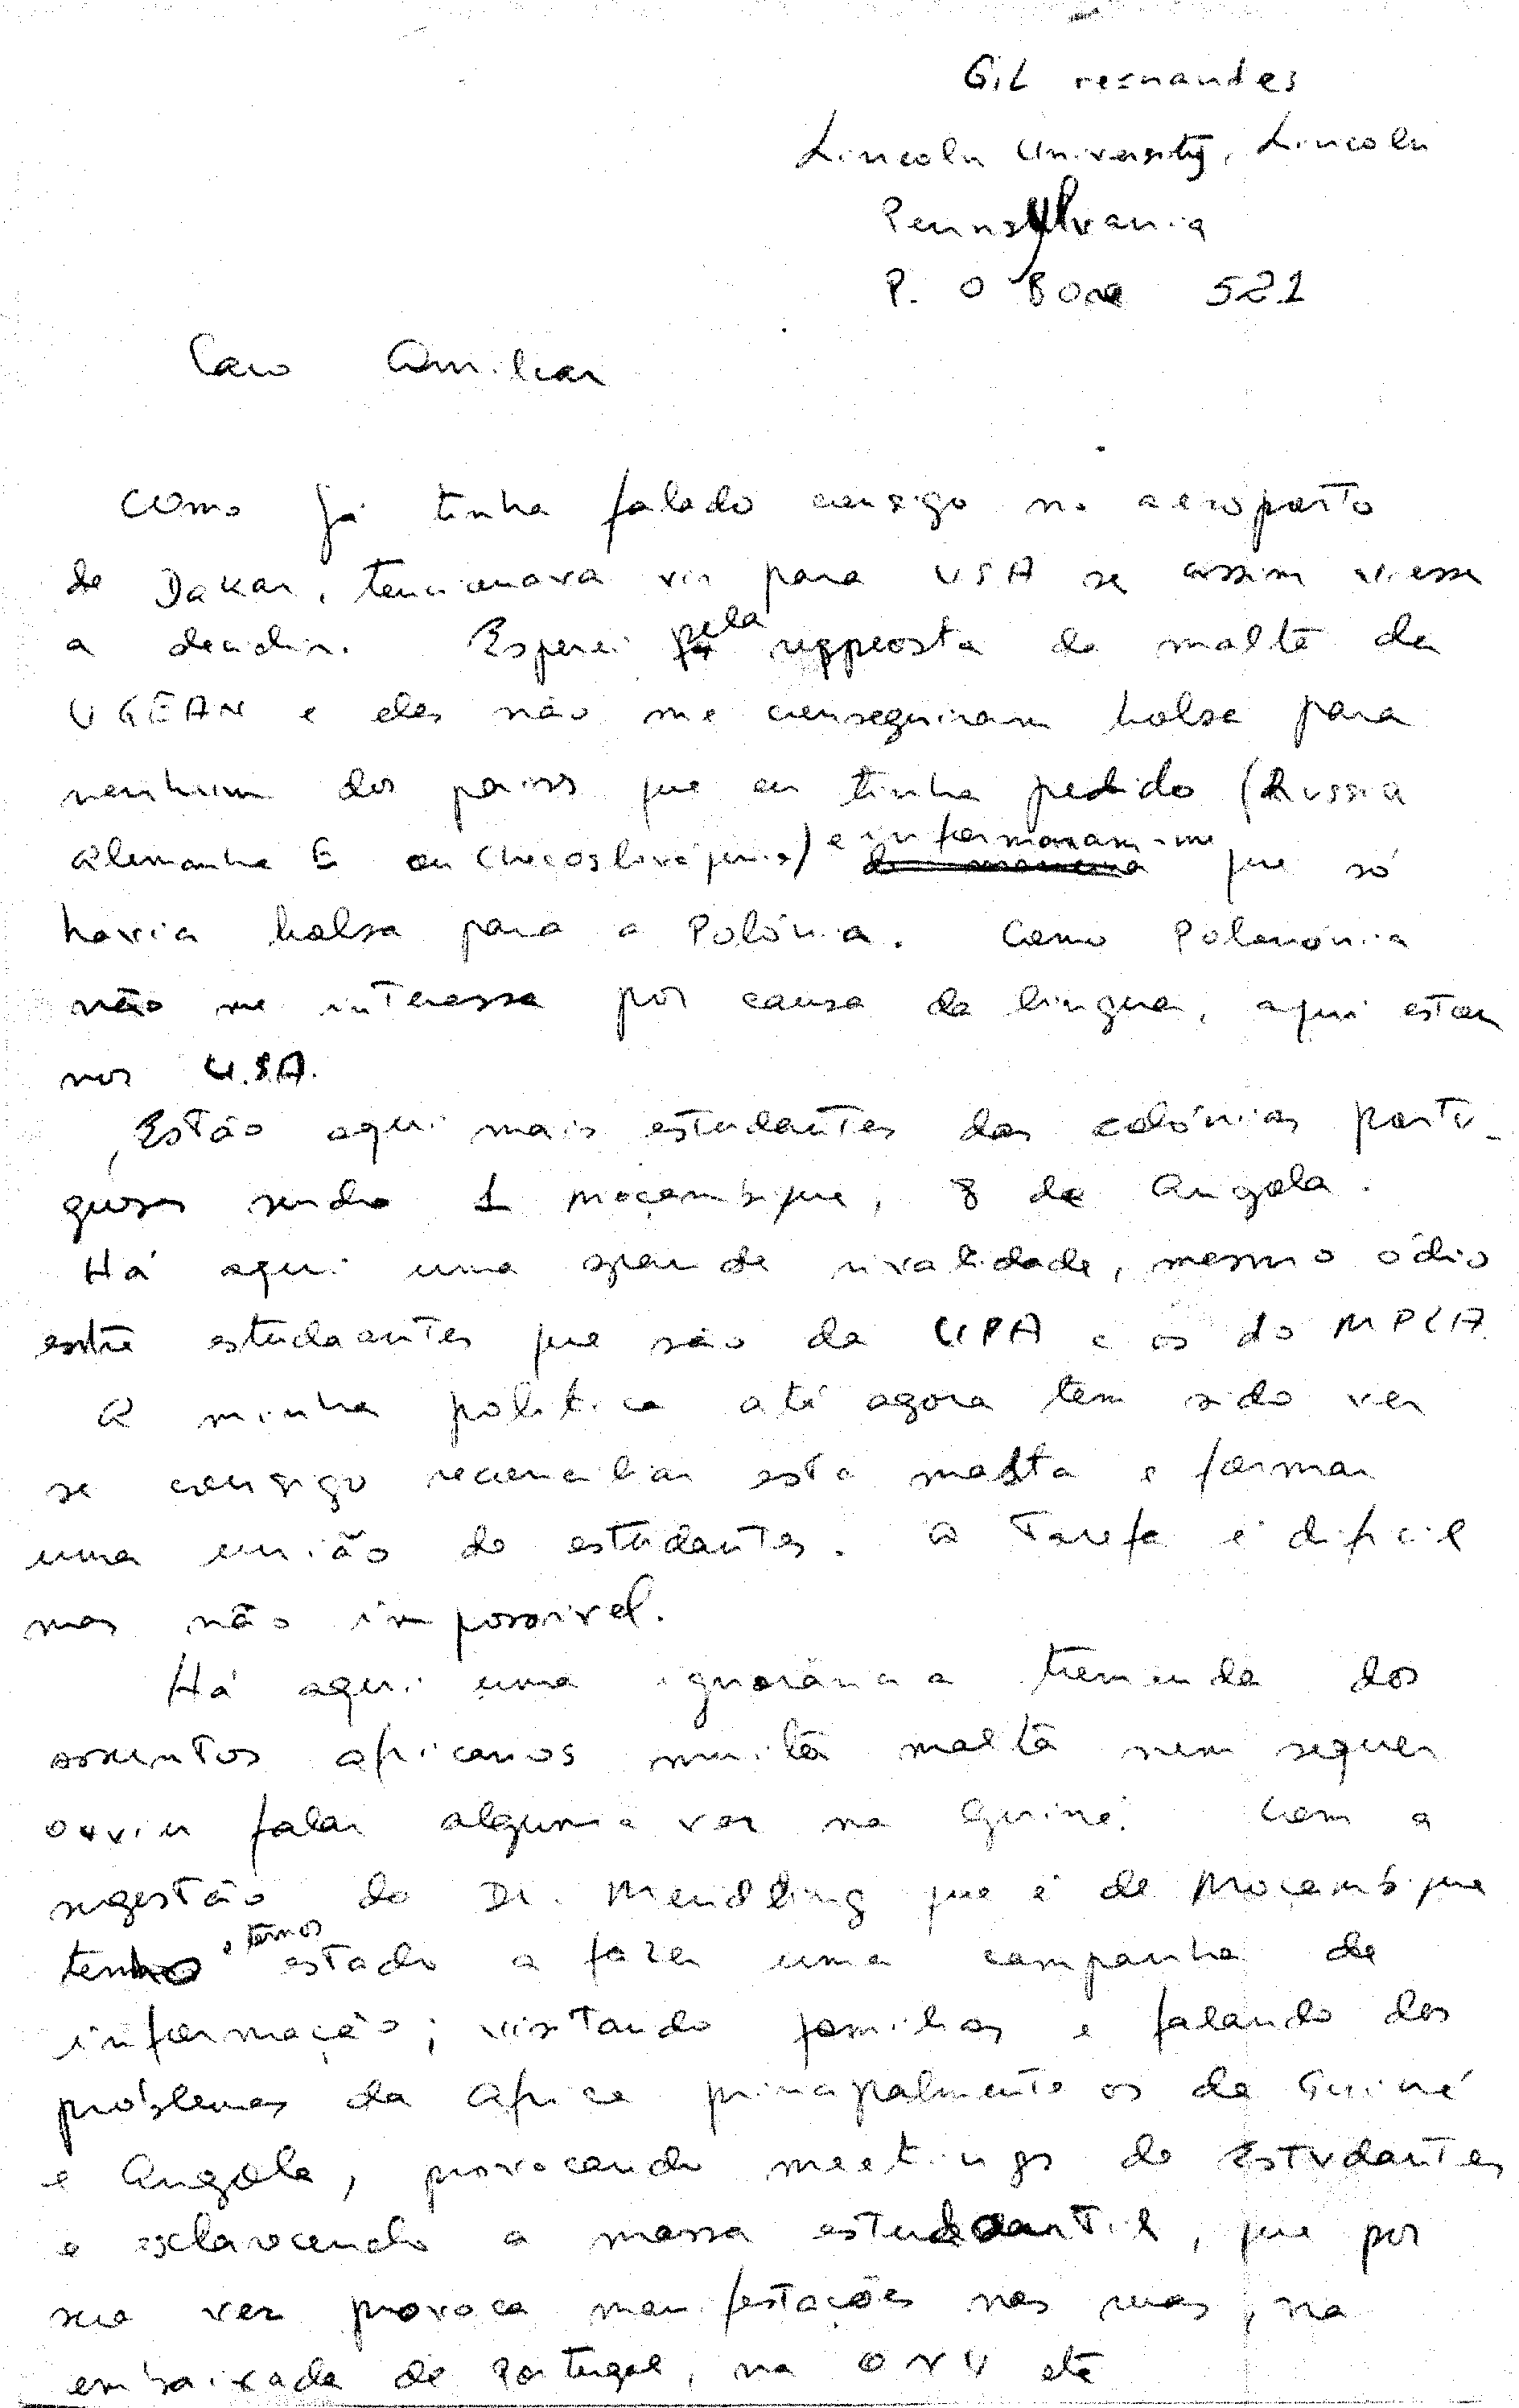 Gil Fernandes
Lincoln University, Lincoln
Pennsylvania
P. O Boxe 521
Caro Amilcar
Como já tinha falado consigo no aeroporto
de Dakar, tencionava vir para USA se assim viesse
a decidir. Esperei pela resposta da malta da
UGEAN e eles não me conseguiram bolsa para
nenhum dos paises que eu tinha pedido (Russia
Alemanha E ou Checoslováquia) e informaram-me que só
havia bolsa para a Polónia. Como Polonónia
não me interessa por causa da lingua, aqui estou
nos U.S.A.
Estão aqui mais estudantes das colónias portu-
guesas sendo 1 moçambique, 8 de Angola.
Há aqui uma grande rivalidade, mesmo ódio
entre estudaantes que são da UPA e os do MPLA.
A minha politica até agora tem sido ver
se consigo reconciliar esta malta e formar
uma união de estudantes. A Tarefa é dificil
mas não impossivel.
Há aqui uma ignorância tremenda dos
assuntos africanos muita malta nem sequer
ouviu falar alguma vez na Guiné. Com a
sugestão do Dr. que é de Moçambique
tenho e temos estado a fazer uma campanha de
informação; visitando familias e falando dos
problemas da Africa principalmente os da Guiné
e Angola, provocando meetings de Estudantes
e esclarecendo a massa estudantil, que por
sua vez provoca manifestações nas ruas, na
embaixada de Portugal, na ONU etc